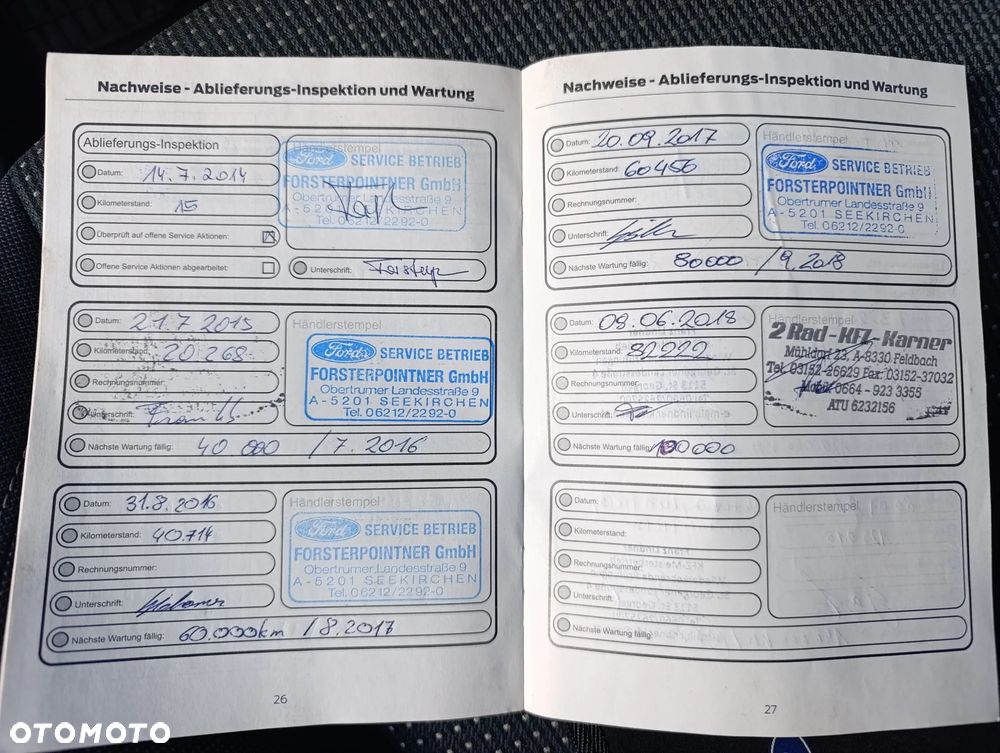 Nachweise - Ablieferungs-Inspektion und Wartung
Ablieferungs-Inspektion
Datum: 14.7.2014
Kilometerstand: 15
Überprüft auf offene Service Aktionen:
Offene Service Aktionen abgearbeitet:
Händlerstempel
Ford SERVICE BETRIEB
FORSTERPOINTNER GmbH
Obertrumer Landesstraße 9
A - 5201 SEEKIRCHEN
Tel. 06212/2292-0
Unterschrift:
Datum: 21.7 2015
Kilometerstand: 20 268
Rechnungsnummer:
Unterschrift:
Nächste Wartung fällig: 40 000 / 7. 2016
Händlerstempel
Ford SERVICE BETRIEB
FORSTERPOINTNER GmbH
Obertrumer Landesstraße 9
A - 5201 SEEKIRCHEN
Tel. 06212/2292-0
Datum: 31.8.2016
Kilometerstand: 40.714
Rechnungsnummer:
Unterschrift:
Nächste Wartung fällig: 60.000km / 8.2017
Händlerstempel
Ford SERVICE BETRIEB
FORSTERPOINTNER GmbH
Obertrumer Landesstraße 9
A - 5201 SEEKIRCHEN
Tel. 06212/2292-0
26
Nachweise - Ablieferungs-Inspektion und Wartung
Datum: 20.09.2017
Kilometerstand: 60456
Rechnungsnummer:
Unterschrift:
Nächste Wartung fällig: 80000 / 9.2018
Händlerstempel
Ford SERVICE BETRIEB
FORSTERPOINTNER GmbH
Obertrumer Landesstraße 9
A - 5201 SEEKIRCHEN
Tel. 06212/2292-0
Datum: 08.06.2018
Kilometerstand: 82222
Rechnungsnummer:
Unterschrift:
Nächste Wartung fällig: 100000
Händlerstempel
2 Rad-KFZ-Karner
Mühldorf 23, A-8330 Feldbach
Tel. 03152-26629 Fax: 03152-37032
Mobil: 0664 - 923 3355
ATU 6232156
Datum:
Kilometerstand:
Rechnungsnummer:
Unterschrift:
Nächste Wartung fällig:
Händlerstempel
27
OTOMOTO